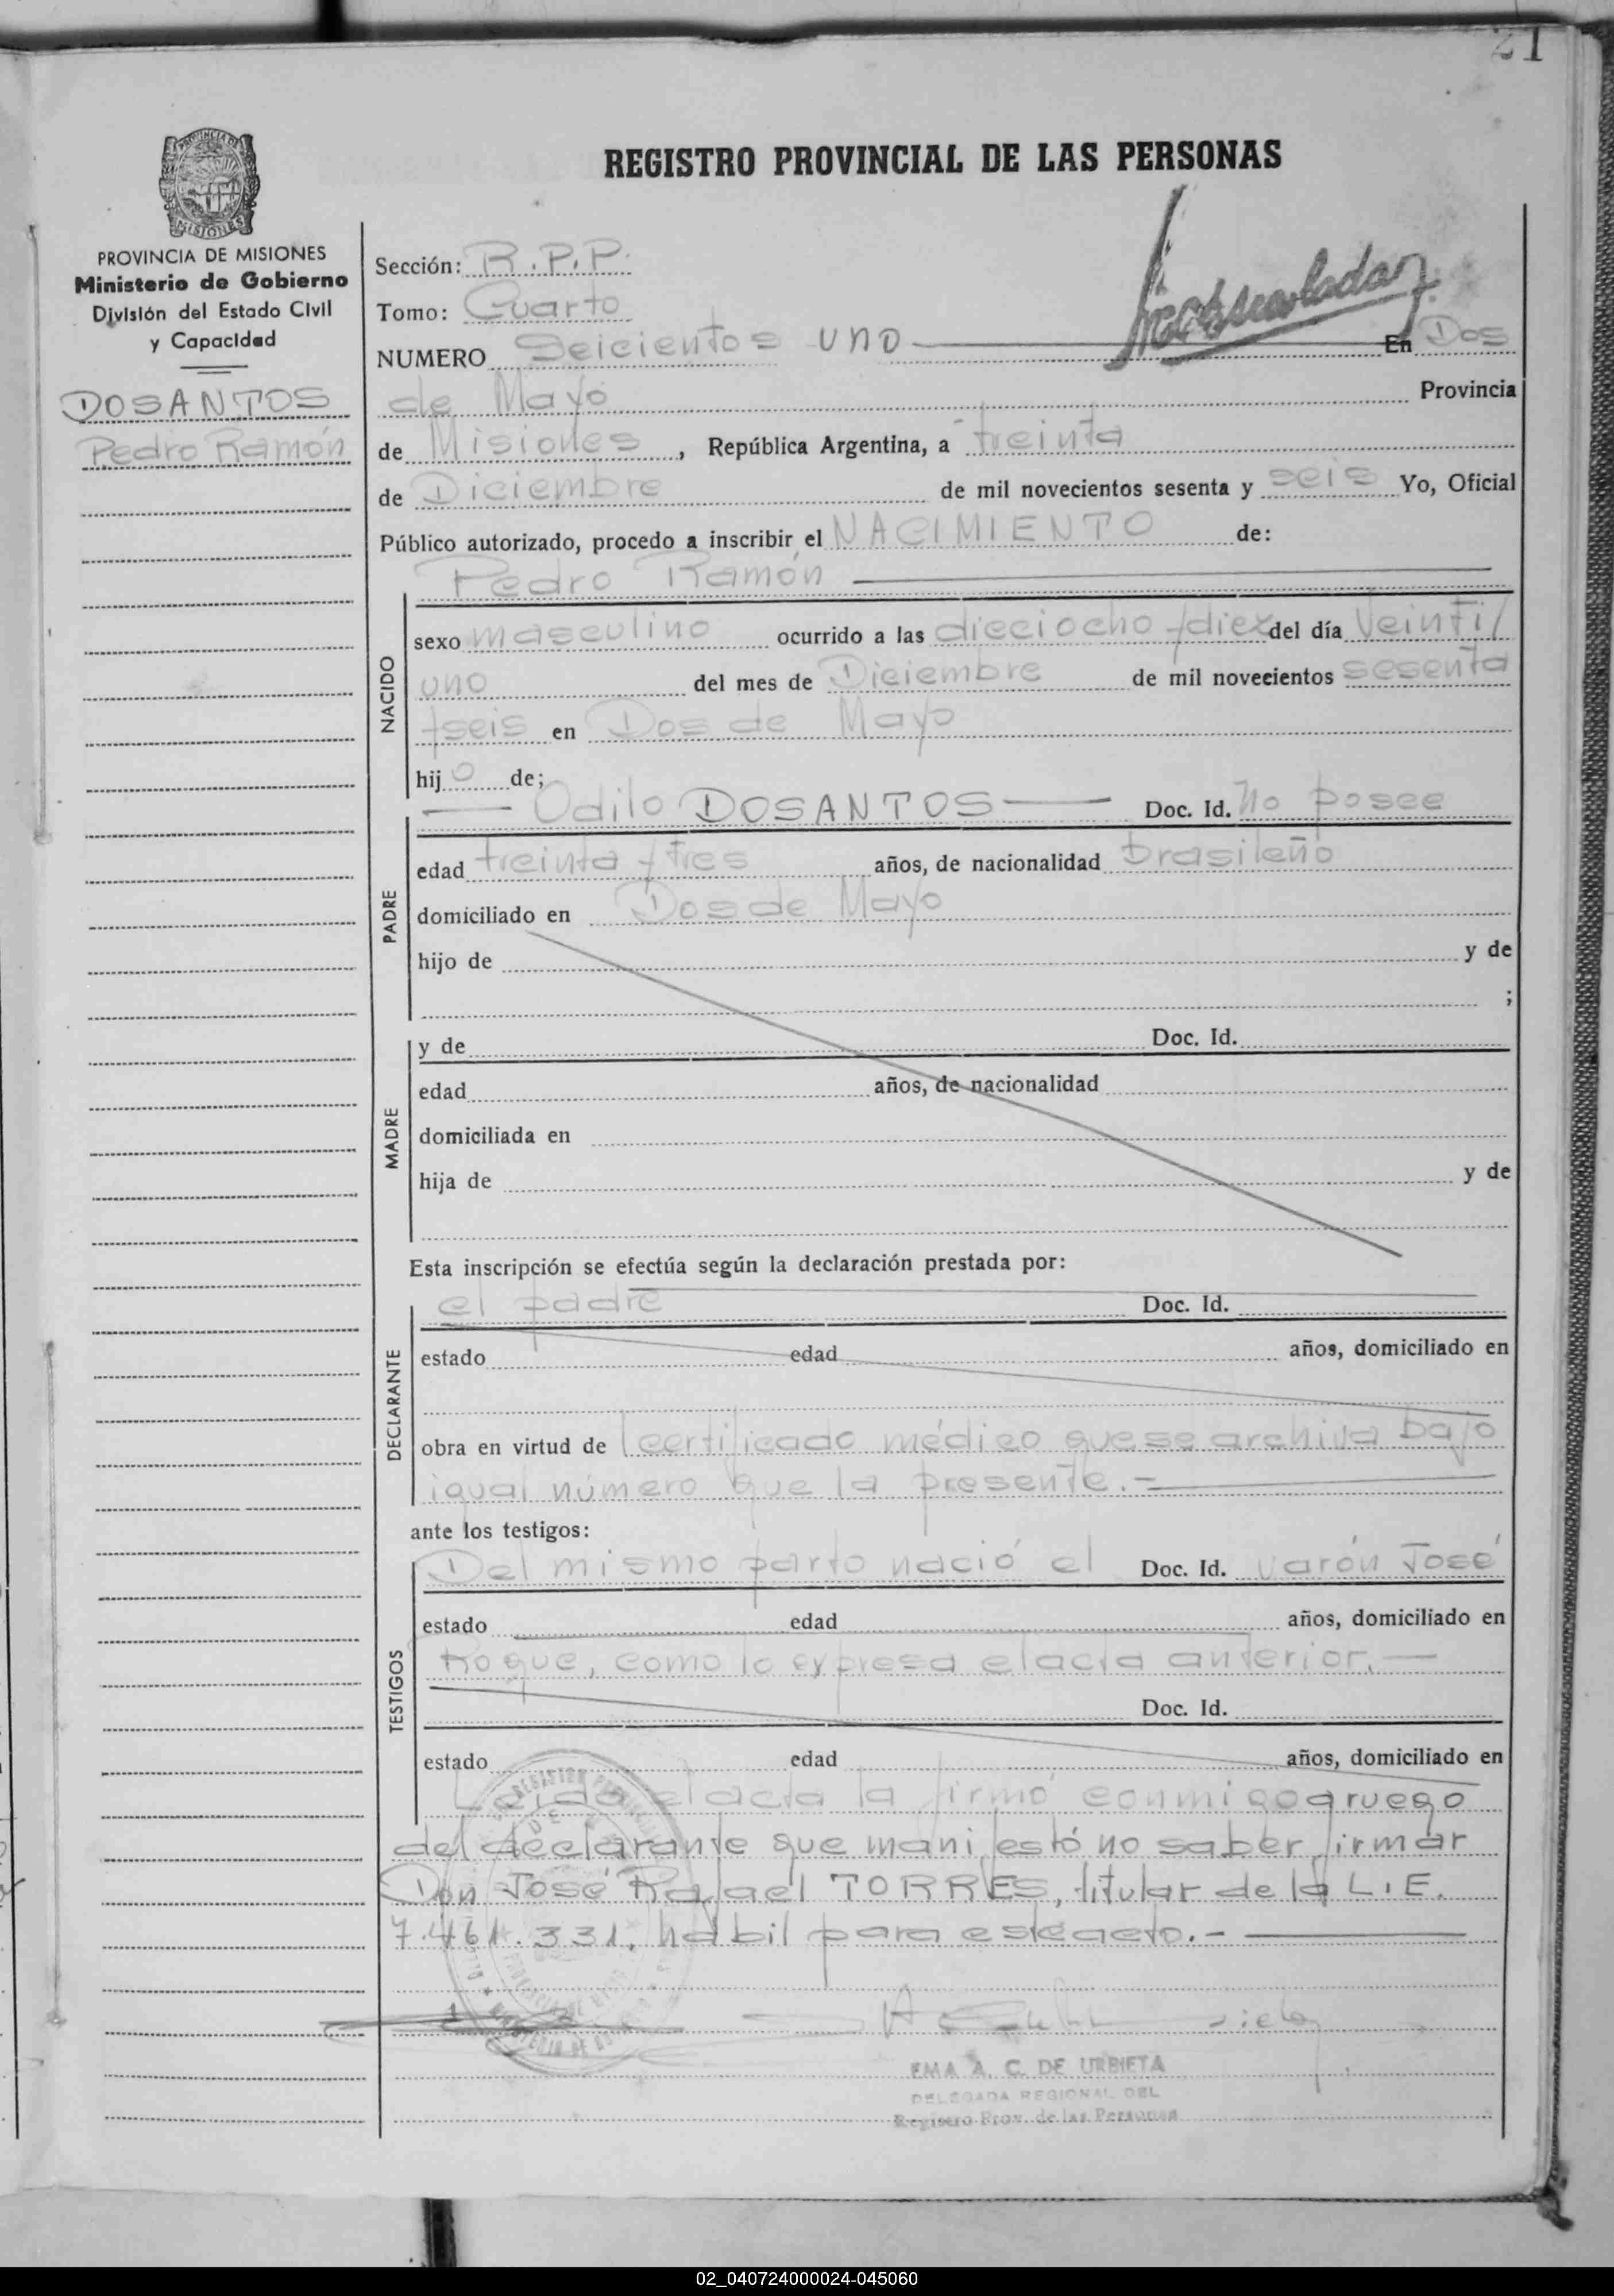 21
REGISTRO PROVINCIAL DE LAS PERSONAS
PROVINCIA DE MISIONES
Ministerio de Gobierno
División del Estado Civil
y Capacidad
DOSANTOS
Pedro Ramón
Sección: R.P.P.
Tomo: Cuarto
NUMERO Seicientos uno En Dos
de Mayo Provincia
de Misiones, República Argentina, a treinta
de Diciembre de mil novecientos sesenta y seis Yo, Oficial
Público autorizado, procedo a inscribir el NACIMIENTO de:
Pedro Ramón
NACIDO
sexo masculino ocurrido a las dieciocho y diez del día Veinti
uno del mes de Diciembre de mil novecientos sesenta
y seis en Dos de Mayo
hijo de;
Odilo DOSANTOS Doc. Id. No posee
PADRE
edad treinta y tres años, de nacionalidad brasileño
domiciliado en Dos de Mayo
hijo de y de
;
MADRE
y de Doc. Id.
edad años, de nacionalidad
domiciliada en
hija de y de
Esta inscripción se efectúa según la declaración prestada por:
el padre Doc. Id.
DECLARANTE
estado edad años, domiciliado en
obra en virtud de certificado médico que se archiva bajo
igual número que la presente.=
ante los testigos:
Del mismo parto nació el Doc. Id. varón José
TESTIGOS
estado edad años, domiciliado en
Roque, como lo expresa el acta anterior.
Doc. Id.
estado edad años, domiciliado en
Leida el acta la firmó conmigo a ruego
del declarante que manifestó no saber firmar
Don José Rafael TORRES, titular de la L.E.
7.461.331, hábil para este acto.-
EMA A. C. DE URBIETA
DELEGADA REGIONAL DEL
Registro Prov. de las Personas
02_040724000024-045060